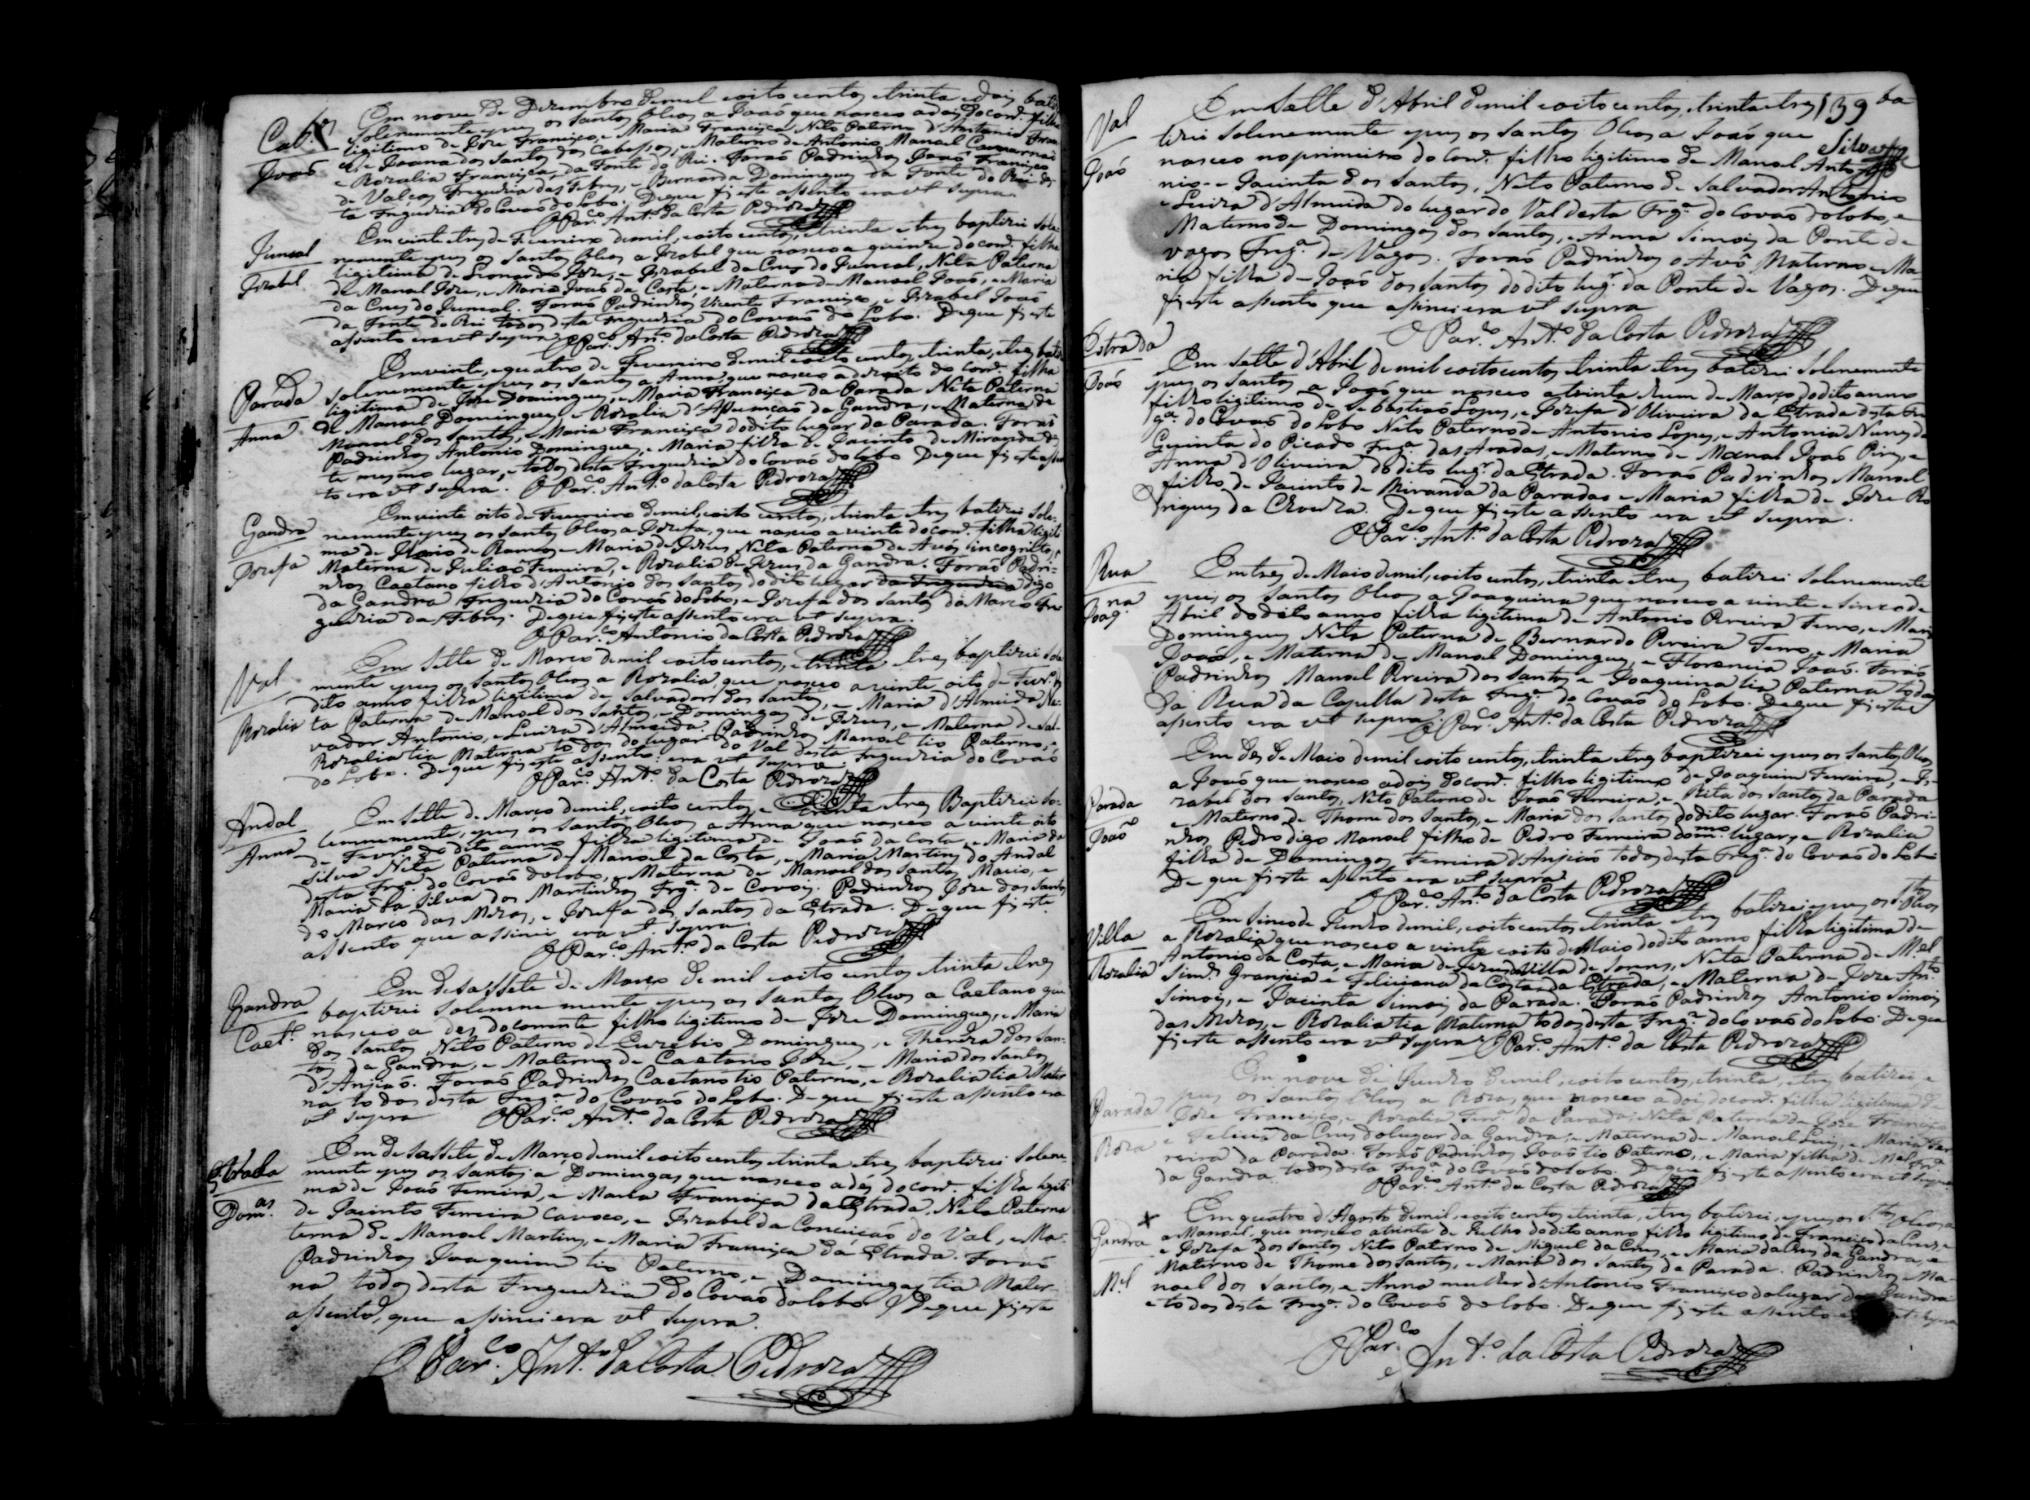 Cab.ços
João
Em nove de Dezembro de mil e oito centos e trinta e dois bati
Solenemente e pus os Santos Oleos a João que nasceo a dois do corr. filho
ligitimo de Joze Francisco, e Maria Francisca Neto Paterno d'Antonio Fran
e Joana dos Santos dos Cabessos, e Materno de Antonio Manoel
e Rozalia Francisca, da Fonte do Rei. Forão Padrinhos João Francisco
de Valcos Freguezia das Febres, e Bernarda Domingues da Fonte do Rei des
ta Freguezia do Covão do Lobo. De que fis este assento era ut supra.
O Par.co Ant.o da Costa Pedroza
Juncal
Izabel
Em vinte e tres de Fevereiro de mil, e oito centos, e trinta e tres baptizei Sole
nemente e pus os Santos Oleos a Izabel que nasceo a quinze do corr. filha
ligitima de Leonardo Joze, e Izabel da Crus do Juncal, Neta Paterna
de Manoel Joze, e Maria João da Costa, e Materna de Manoel João, e Maria
da Crus do Juncal. Forão Padrinhos Vicente Francisco, e Izabel João
da Fonte do Rei todos desta Freguezia do Covão do Lobo. De que fis este
assento era ut supra. O Par.co Ant.o da Costa Pedroza
Parada
Anna
Em vinte, e quatro de Fevereiro de mil e oito centos, e trinta, e tres bati
Solenemente e pus os Santos a Anna, que nasceo a dezoito do corr. filha
ligitima de Joze Domingues, e Maria Francisca da Parada Neta Paterna
de Manoel Domingues, e Rozalia d'Asumcão da Gandra, e Materna de
Manoel dos Santos, e Maria Francisca do dito lugar da Parada. Forão
Padrinhos Antonio Domingues, e Maria filha de Jacinto de Miranda des
te mesmo lugar, e todos desta Freguezia do Covão do Lobo De que fis este assen
to era ut supra. O Par.co Ant.o da Costa Pedroza
Gandra
Jozefa
Em vinte oito de Fevereiro de mil, e oito centos, e trinta e tres batizei Sole
nemente e pus os Santos Oleos a Jozefa, que nasceo a vinte do corr. filha ligiti
ma de de Ramos e Maria de Jezus Neta Paterna de Avós incognitos, e
Materna de Julião Ferreira, e Rozalia de Jezus da Gandra. Forão Padri-
nhos Caetano filho d'Antonio dos Santos do dito lugar da Freguezia digo
da Gandra Freguezia do Covão do Lobo, e Jozefa dos Santos do Marco Fre
guezia das Febres. De que fis este assento era ut supra.
O Par.co Antonio da Costa Pedroza
Val
Rozalia
Em Sette de Março de mil e oito centos, e trinta e tres baptizei Sole
mente e pus os Santos Oleos a Rozalia, que nasceo a vinte oito de Fevr.o do
dito anno filha ligitima de Salvador dos Santos, e Maria d'Almeida Ne
ta Paterna de Manoel dos Santos, e Domingas de Jezus, e Materna de Sal-
vador Antonio, e Luiza d'Almeida. Padrinhos Manoel tio Paterno, e
Rozalia tia Materna todos do lugar do Val desta Freguezia do Covão
do Lobo. De que fis este assento era ut supra.
O Par.co Ant.o da Costa Pedroza
Andal
Anna
Em Sette de Março de mil, e oito centos, e trinta e tres Baptizei So-
lenemente, e pus os Santos Oleos a Anna que nasceo a vinte oito
de Fevr.o do dito anno filha ligitima de João da Costa, e Maria da
Silva Neta Paterna de Manoel da Costa, e Maria Martins do Andal
desta Frg.a do Covão do Lobo, e Materna de Manoel dos Santos Marco, e
Maria da Silva dos Martinhos Frg.a de Covões. Padrinhos Joze dos Santos
do Marco das Meras, e Jozefa dos Santos da Estrada. De que fis este
assento que assinei era ut supra
O Par.co Ant.o da Costa Pedroza
Gandra
Caet.o
Em desassete de Março de mil e oito centos e trinta e tres
baptizei Solenemente e pus os Santos Oleos a Caetano que
nasceo a des do corrente filho ligitimo de Joze Domingues, e Maria
dos Santos Neto Paterno de Euzebio Domingues, e Thereza dos San-
tos da Gandra, e Materno de Caetano Joze, e Maria dos Santos
d'Anjeão. Forão Padrinhos Caetano tio Paterno, e Rozalia tia Mater
na todos desta Frg.a do Covão do Lobo. De que fis este assento era
ut supra O Par.co Ant.o da Costa Pedroza
Estrada
Dom.as
Em desassete de Março de mil e oito centos e trinta e tres baptizei Solene-
mente e pus os Santos; a Domingas que nasceo a dês do corr. filha legiti
ma de João Ferreira, e Maria Francisca da Estrada, Neta Paterna
de Jacinto Ferreira Cavoco, e Izabel da Conceicão do Val, e Ma-
terna de Manoel Martins, e Maria Francisca da Estrada. Forão
Padrinhos Joaquim tio Paterno, e Domingas tia Mater-
na todos desta Freguezia do Covão do Lobo. De que fis este
assento, que assinei era ut supra.
O Par.co Ant.o da Costa Pedroza
139
Val
João
Em Sette d'Abril de mil e oito centos, e trinta e tres ba
tizei Solenemente e pus os Santos Oleos a João que
nasceo no primeiro do corr. filho ligitimo de Manoel Anto
nio e Jacinta dos Santos, Neto Paterno de Salvador Antonio
e Luiza d'Almeida do lugar do Val desta Frg.a do Covão do Lobo, e
Materno de Domingos dos Santos, e Anna Simois da Ponte de
Vagos Freg.a de Vagos. Forão Padrinhos o Avô Materno e Ma
ria filha de João dos Santos do dito lug.r da Ponte de Vagos. De que
fis este assento que assinei era ut supra
O Par.co Ant.o da Costa Pedroza
Estrada
João
Em Sette d'Abril de mil e oito centos e trinta e tres batizei Solenemente
e pus os Santos a João que nasceo a trinta e hum de Março do dito anno
filho ligitimo de Sebastião Lopes, e Jozefa d'Oliveira da Estrada desta Fre
g.a do Covão do Lobo Neto Paterno de Antonio Lopes, e Antonia Nunes da
Quinta do Picado Frg.a das Aradas, e Materno de Manoel João Pires, e
Anna d'Oliveira do dito lug.r da Estrada. Forão Padrinhos Manoel
filho de Jacinto de Miranda da Parada e Maria filha de Joze Ro
drigues da Choiza. De que fis este assento era ut supra.
O Par.co Ant.o da Costa Pedroza
Rua
Joaq.na
Em tres de Maio de mil, e oito centos, e trinta e tres batizei Solenemente
e pus os Santos Oleos a Joaquina que nasceo a vinte e sinco de
Abril do dito anno filha ligitima de Antonio Pereira Ferro, e Maria
Domingues Neta Paterna de Bernardo Pereira Ferro, e Maria
João, e Materna de Manoel Domingues, e Florencia João. Forão
Padrinhos Manoel Pereira dos Santos e Joaquina tia Paterna todos
da Rua da Capella desta Freg.a do Covão do Lobo. De que fis este
assento era ut supra. O Par.co Ant.o da Costa Pedroza
Parada
João
Em des de Maio de mil e oito centos, e trinta e tres baptizei e pus os Santos Oleos
a João que nasceo a dois do corr. filho ligitimo de Joaquim Ferreira, e I-
zabel dos Santos, Neto Paterno de João Ferreira, e Rita dos Santos da Parada
e Materno de Thome dos Santos, e Maria dos Santos do dito lugar. Forão Padri-
nhos Pedro digo Manoel filho de Pedro Ferreira do m.mo lugar, e Rozalia
filha de Domingos Ferreira d'Anjeão todos desta Frg.a do Covão do Lobo
De que fis este assento era ut supra
O Par.co Ant.o da Costa Pedroza
Villa
Rozalia
Em sinco de Junho de mil, e oito centos, e trinta e tres batizei e pus os S.tos Oleos
a Rozalia que nasceo a vinte e oito de Maio do dito anno filha ligitima de
Antonio da Costa, e Maria de Jezus da Villa de Sorens, Neta Paterna de M.el
e Feliciana da Costa da Estrada, e Materna de Joze An.to
Simois, e Jacinta Simois da Parada. Forão Padrinhos Antonio Simois
das Meras, e Rozalia tia Materna todos desta Frg.a do Covão do Lobo. De que
fis este assento era ut supra O Par.co Ant.o da Costa Pedroza
Parada
Roza
Em nove de Junho de mil, e oito centos, e trinta, e tres batizei e
pus os Santos Oleos a Roza, que nasceo a dois do corr. filha ligitima de
Joze Francisco, e Rozalia Ferr.a da Parada, Neta Paterna de Joze Francisco
e Felicia da Crus do lugar da Gandra, e Materna de Manoel Luis, e Maria Fer
reira da Parada. Forão Padrinhos João tio Paterno, e Maria filha de M.el
da Gandra todos desta Frg.a do Covão do Lobo. De que fis este assento era ut supra
O Par.co Ant.o da Costa Pedroza
Gandra
M.el
Em quatro d'Agosto de mil, e oito centos, e trinta, e tres batizei, e pus os S.tos Oleos
a Manoel, que nasceo a trinta de Julho do dito anno filho ligitimo de Francisco da Crus, e
e Jozefa dos Santos Neto Paterno de Miguel da Crus, e Maria da Crus da Gandra, e
Materno de Thome dos Santos, e Maria dos Santos da Parada. Padrinhos Ma-
noel dos Santos, e Anna mulher d'Antonio Francisco do lugar da Gandra
e todos desta Frg.a do Covão do Lobo. De que fis este assento era ut supra
O Par.co Ant.o da Costa Pedroza